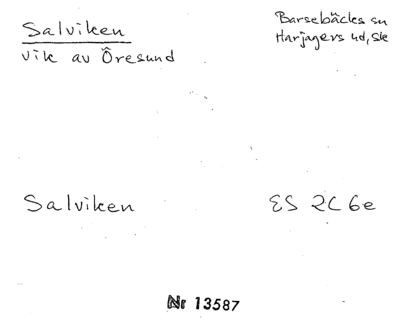 Salviken
vik av Öresund
Barsebäcks sn
Harjagers hd, Sk
Salviken
ES 2C 6e
Nr 13587